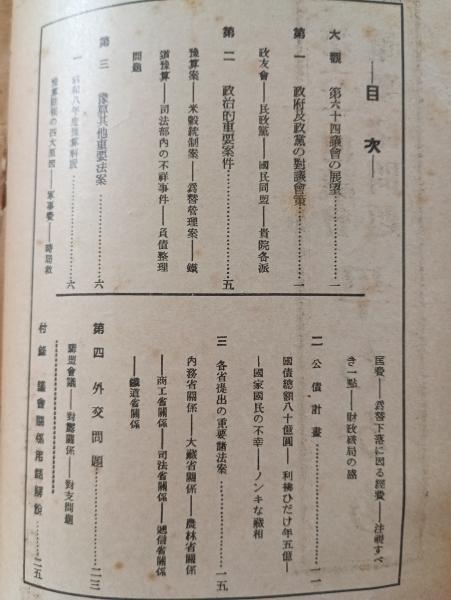 目次
大觀 第六十四議會の展望…………一
第一 政府及政黨の對議會策…………一
政友會——民政黨——國民同盟——貴院各派
第二 政治的重要案件…………五
豫算案——米穀統制案——爲替管理案——鐵
道豫算——司法部內の不祥事件——負債整理
問題
第三 豫算其他重要法案…………六
一 昭和八年度豫算解說…………六
豫算膨脹の四大原因——軍事費——時局救
匡費——爲替下落に因る經費——注視すべ
き一點——財政破局の惑
二 公債計畫…………一一
國債總額八十億圓——利拂ひだけ年五億—
—國家國民の不幸——ノンキな藏相
三 各省提出の重要諸法案…………一五
內務省關係——大藏省關係——農林省關係
——商工省關係——司法省關係——遞信省關係
——鐵道省關係
第四 外交問題…………二三
聯盟會議——對露關係——對支問題
付錄 議會關係用語解說…………二五